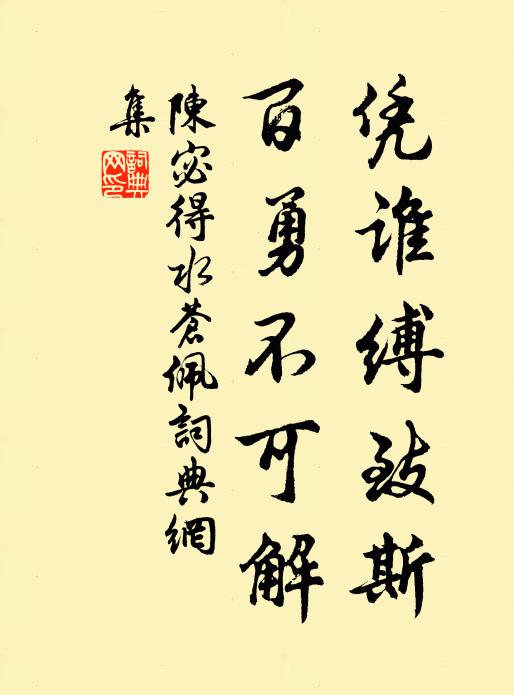 凭谁缚致斯
百勇不可解
陳宓得水蒼佩詞典網
集
詞典
网印